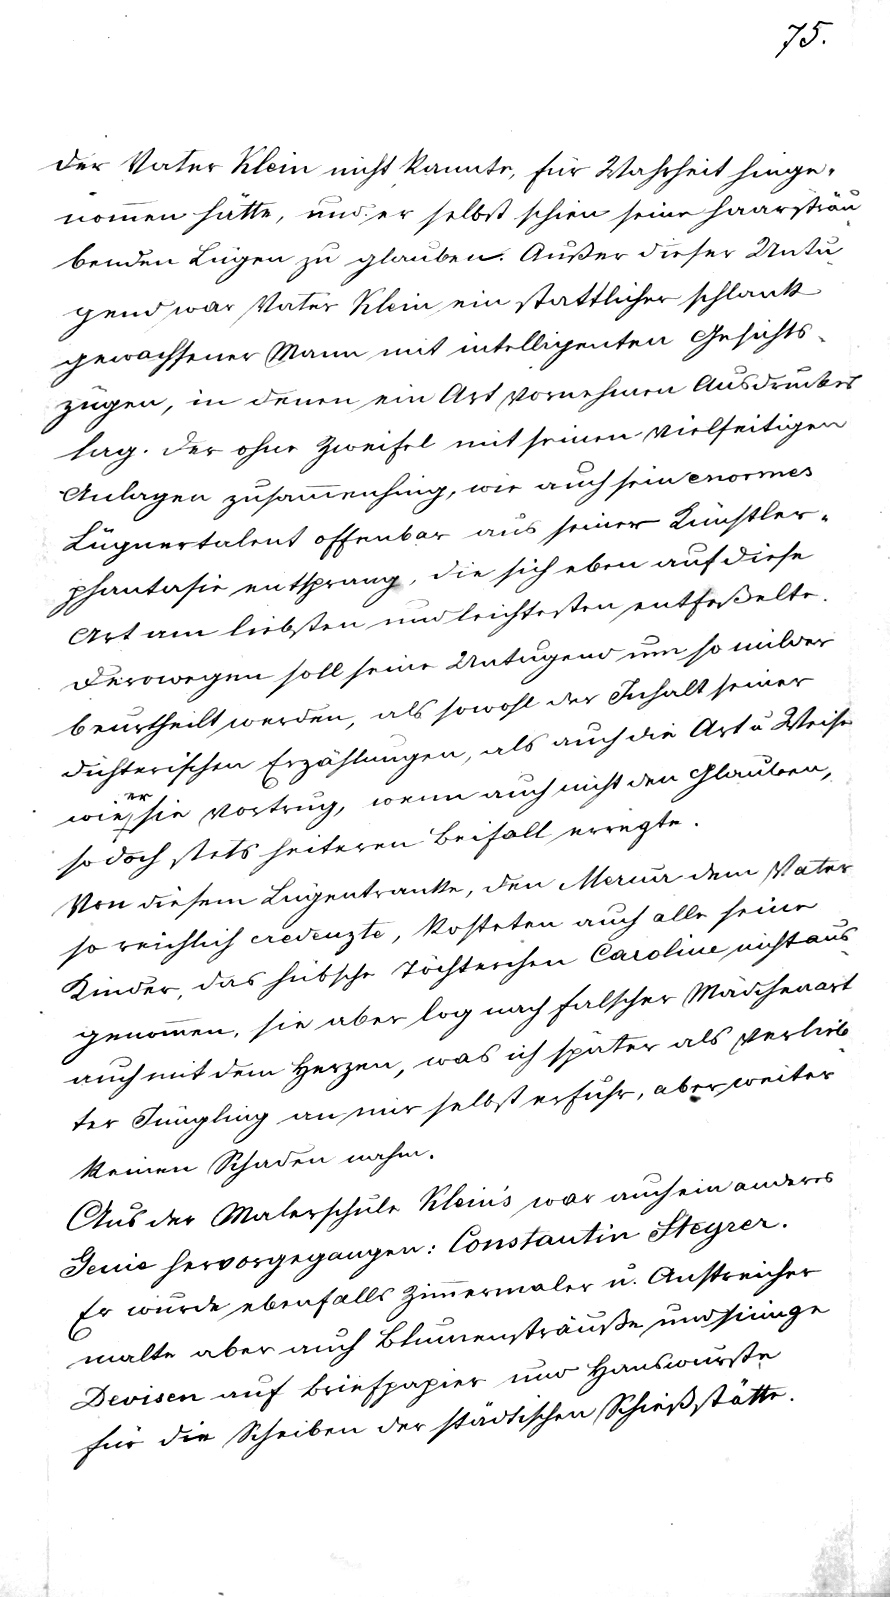 75.
der Vater Klein nicht kannte, für Wahrheit hinge-
nom̅en hätte, und er selbst schien seine haarsträu
benden Lügen zu glauben. Außer dieser Untu
gend war Vater Klein ein stattlicher schlank
gewachsener Mann mit intelligenten Gesichts-
zügen, in denen ein Art vornehmen Ausdruckes
lag. der ohne Zweifel mit seinen vielseitigen
Anlagen zusam̅enhing, wie auch sein enormes
Lügnertalent offenbar aus seiner Künstler-
phantasie entsprang, die sich eben auf diese
Art am liebsten und leichtesten entfeßelte.
Derowegen soll seine Untugend um so milder
beurtheilt werden, als sowohl der Inhalt seiner
dichterischen Erzählungen, als auch die Art u Weise
wie er sie vortrug, wenn auch nicht den Glauben,
so doch stets heiteren Beifall erregte.
Von diesem Lügentranke, den Mercur dem Vater
so reichlich credenzte, kosteten auch alle seine
Kinder, das hübsche Töchterchen Caroline nicht aus
genom̅en, sie aber log nach falscher Mädchenart
auch mit dem Herzen, was ich später als verlieb
ter Jüngling an mir selbst erfuhr, aber weiter
keinen Schaden nahm.
Aus der Malerschule Klein's war auch ein anderes
Genie hervorgegangen: Constantin Steyrer.
Er wurde ebenfalls Zim̅ermaler u. Anstreicher
malte aber auch Blumensträuße und sinnige
Devisen auf Briefpapier und Hanswurste
für die Scheiben der städtischen Schießstätte.